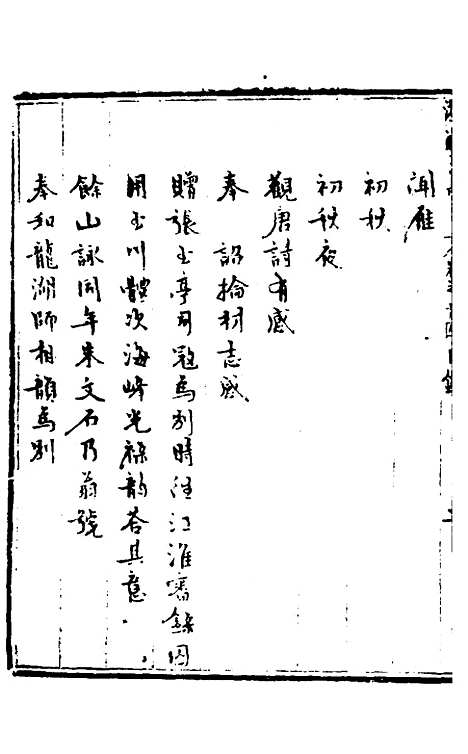 聞雁
初秋
初秋夜
觀唐詩有感
奉 詔掄材志感
贈張玉亭司寇爲別時往江淮審錄因
用玉川體次海峰光祿韵荅其意
餘山詠同年朱文石乃翁號
奉和龍湖師相韻爲別